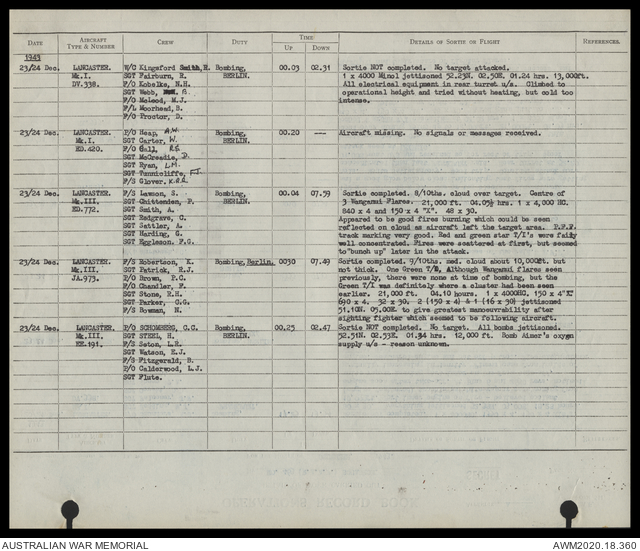 DATE AIRCRAFT TYPE & NUMBER CREW DUTY TIME UP DOWN DETAILS OF SORTIE OR FLIGHT REFERENCES.
1943
23/24 Dec. LANCASTER. W/C Kingsford Smith, R. Bombing, 00.03 02.31 Sortie NOT completed. No target attacked.
Mk.I. SGT Fairburn, R. BERLIN. 1 x 4000 Minol jettisoned 52.23N. 02.50E. 01.24 hrs. 13,000ft.
DV.338. F/O Kobelke, N.H. All electrical equipment in rear turret u/s. Climbed to
SGT Webb, B. operational height and tried without heating, but cold too
F/O McLeod, M.J. intense.
F/L Moorhead, B.
F/O Proctor, D.
23/24 Dec. LANCASTER. P/O Heap, A.W. Bombing, 00.20 --- Aircraft missing. No signals or messages received.
Mk.I. SGT Carter, W. BERLIN.
ED.420. F/O Gall,
SGT McCreadie, D.
SGT Ryan, L.M.
SGT Tunnicliffe, F.J.
F/S Glover.
23/24 Dec. LANCASTER. P/S Lawson, S. Bombing, 00.04 07.59 Sortie completed. 8/10ths. cloud over target. Centre of
Mk.III. SGT Chittenden, P. BERLIN. 3 Wanganui Flares. 21,000 ft. 04.05½ hrs. 1 x 4,000 HC.
ED.772. SGT Smith, A. 840 x 4 and 150 x 4 "X". 48 x 30.
SGT Redgrave, G. Appeared to be good fires burning which could be seen
SGT Sattler, A. reflected on cloud as aircraft left the target area. P.F.F.
SGT Harding, G. track marking very good. Red and green star T/I's were fairly
SGT Eggleson, F.G. well concentrated. Fires were scattered at first, but seemed
to "bunch up" later in the attack.
23/24 Dec. LANCASTER. F/S Robertson, K. Bombing, Berlin. 0030 07.49 Sortie completed. 9/10ths. med. cloud about 10,000ft. but
Mk.III. SGT Patrick, R.J. not thick. One Green T/I, Although Wanganui flares seen
JA.973. P/O Brown, P.C. previously, there were none at time of bombing, but the
F/O Chandler, F. Green T/I was definitely where a cluster had been seen
SGT Stone, R.H. earlier. 21,000 ft. 04.10 hours. 1 x 4000HC. 150 x 4"X"
SGT Parker, C.G. 690 x 4. 32 x 30. 2 (150 x 4) & 1 (16 x 30) jettisoned
F/S Bowman, N. 51.10N. 05.00E to give greatest manoeuvrability after
sighting fighter which seemed to be following aircraft.
23/24 Dec. LANCASTER. P/O SCHOMBERG, G.C. Bombing, 00.25 02.47 Sortie NOT completed. No target. All bombs jettisoned.
Mk.III. SGT STEEL, H. BERLIN. 52.51N. 02.33E. 01.34 hrs. 12,000 ft. Bomb Aimer's oxygen
EE.191. F/S Seton, L.R. supply u/s - reason unknown.
SGT Watson, E.J.
F/S Fitzgerald, B.
P/O Calderwood, L.J.
SGT Flute.
AUSTRALIAN WAR MEMORIAL AWM2020.18.360